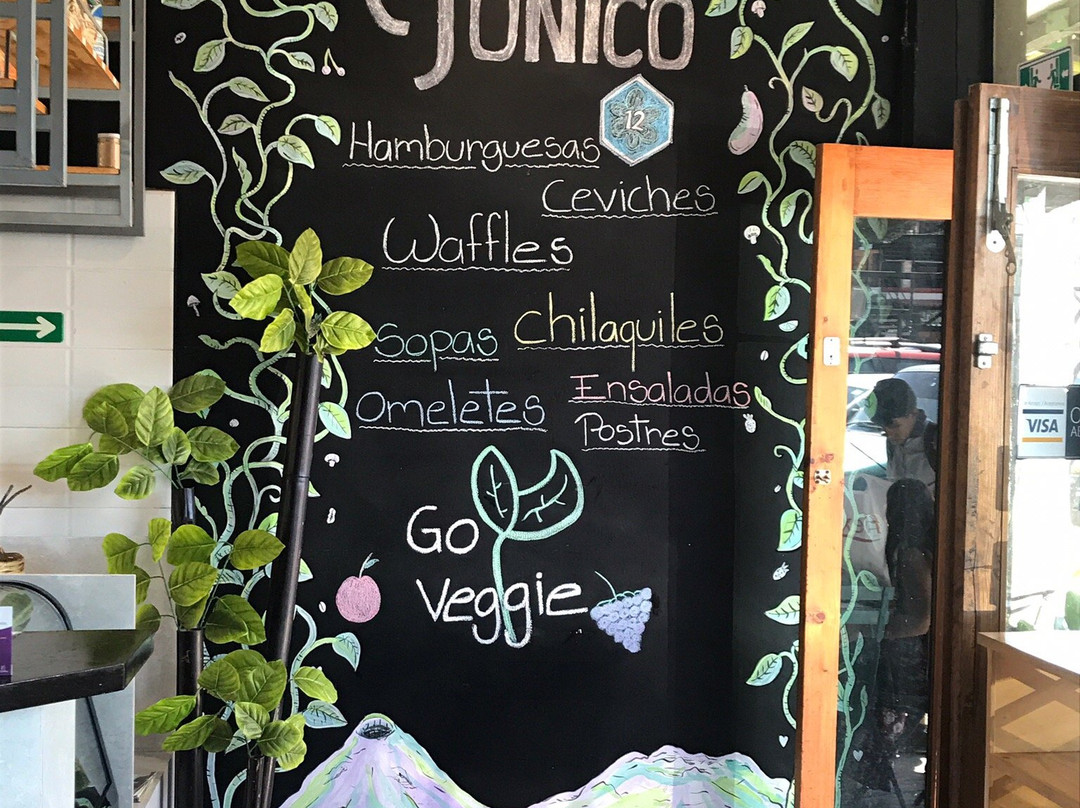 Hamburguesas 12
Ceviches
Waffles
Sopas
Chilaquiles
Omeletes
Ensaladas
Postres
Go
Veggie
VISA